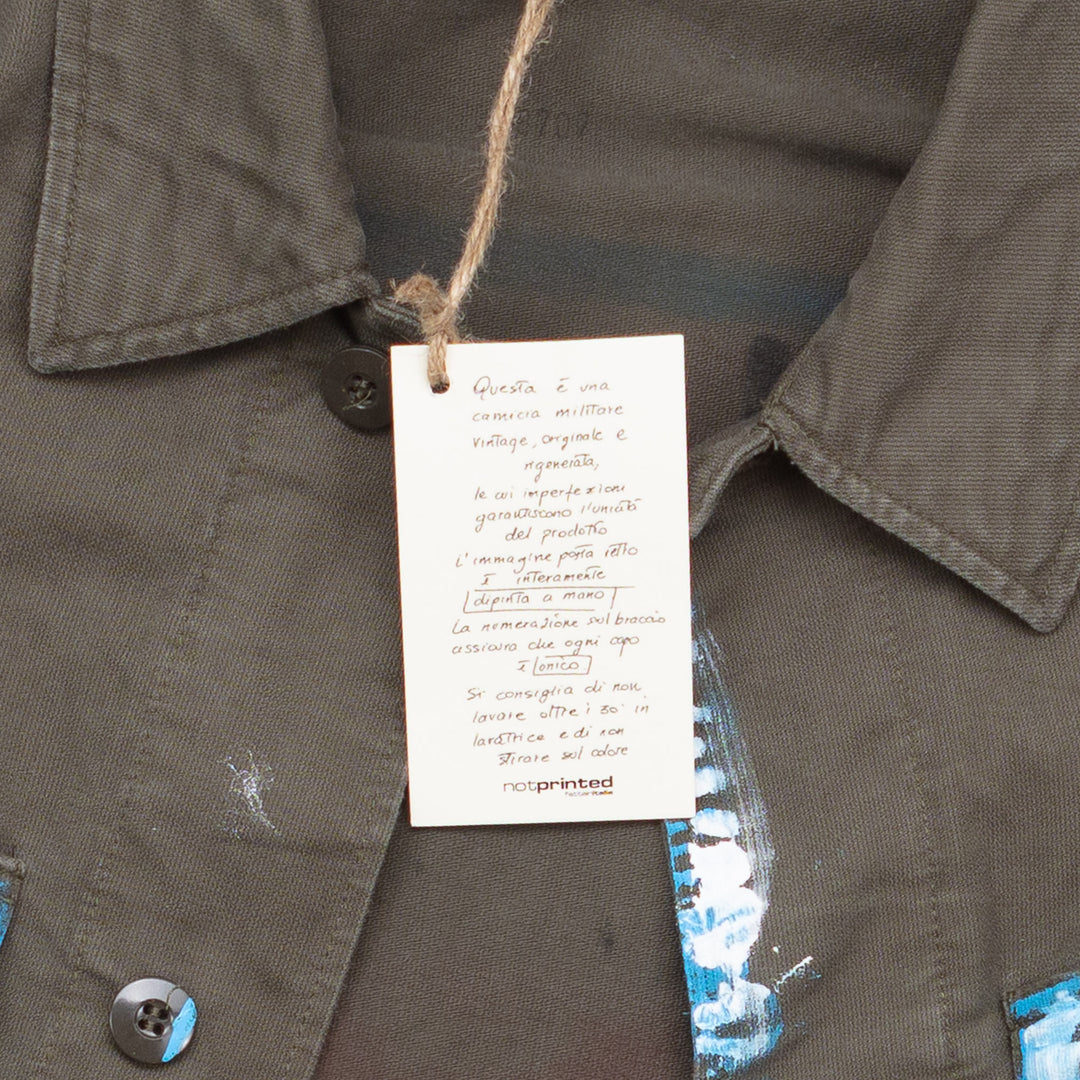 Questa è una
camicia militare
vintage, originale e
rigenerata,
le cui imperfezioni
garantiscono l'unicità
del prodotto
L'immagine porta retto
è interamente
dipinta a mano
La numerazione sul braccio
assicura che ogni capo
è unico.
Si consiglia di non
lavare oltre i 30° in
lavatrice e di non
stirare sul colore
notprinted
fattoinitalia